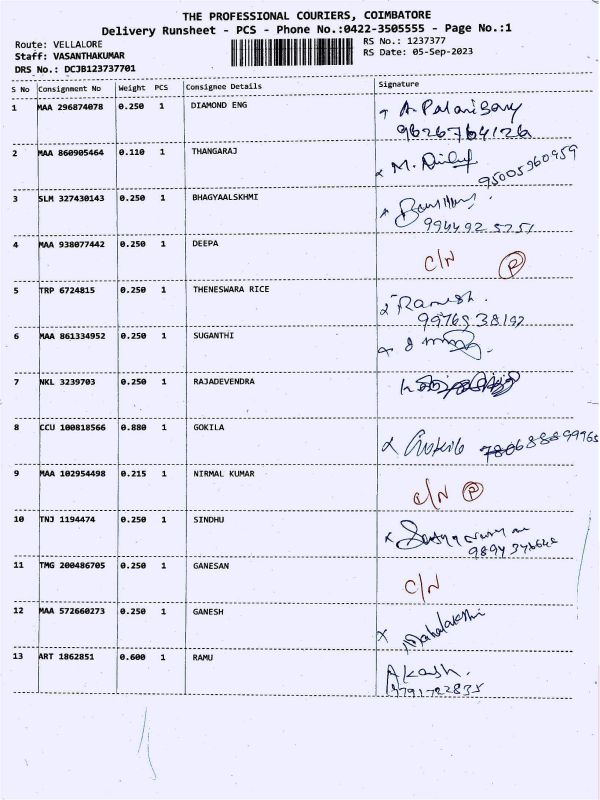 THE PROFESSIONAL COURIERS, COIMBATORE
Delivery Runsheet - PCS - Phone No.:0422-3505555 - Page No.:1
Route: VELLALORE RS No.: 1237377
Staff: VASANTHAKUMAR RS Date: 05-Sep-2023
DRS No.: DCJB123737701
S No Consignment No Weight PCS Consignee Details Signature
1 MAA 296874078 0.250 1 DIAMOND ENG
9626764126
2 MAA 860905464 0.110 1 THANGARAJ M.
9500560959
3 SLM 327430143 0.250 1 BHAGYAALSKHMI
4 MAA 938077442 0.250 1 DEEPA C/N P
5 TRP 6724815 0.250 1 THENESWARA RICE Ramesh.
6 MAA 861334952 0.250 1 SUGANTHI
7 NKL 3239703 0.250 1 RAJADEVENDRA
8 CCU 100818566 0.880 1 GOKILA Gokila
9 MAA 102954498 0.215 1 NIRMAL KUMAR C/N P
10 TNJ 1194474 0.250 1 SINDHU
11 TMG 200486705 0.250 1 GANESAN C/N
12 MAA 572660273 0.250 1 GANESH Mahalakshmi
13 ART 1862851 0.600 1 RAMU Akash.
9791722835